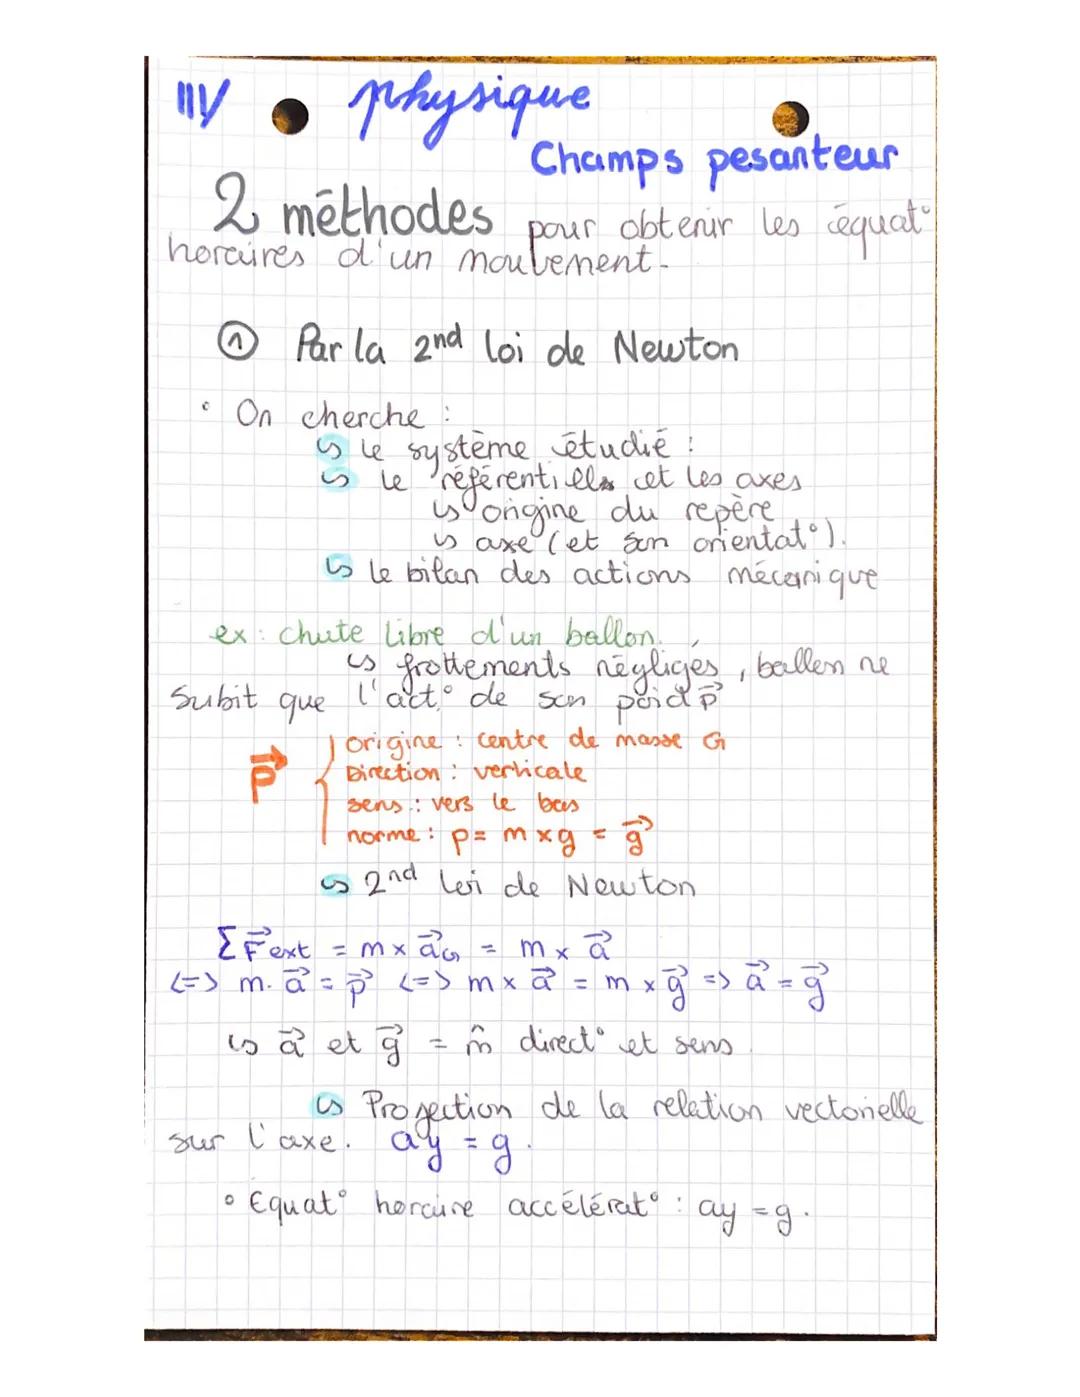 III/ physique
Champs pesanteur
2 méthodes pour obtenir les équat°
horaires d'un mouvement.
① Par la 2nd loi de Newton
• On cherche :
↳ le système étudié :
↳ le référentiel et les axes
↳ origine du repère
↳ axe (et son orientat°).
↳ le bilan des actions mécanique
ex : chute libre d'un ballon.
↳ frottements négligés, ballon ne
subit que l'act° de son poid p⃗
P⃗ { origine : centre de masse G
Direction : verticale
sens : vers le bas
norme : p = m x g = g⃗
↳ 2nd loi de Newton
Σ F⃗ext = m x a⃗G = m x a⃗
<=> m. a⃗ = p⃗ <=> m x a⃗ = m x g⃗ => a⃗ = g⃗
↳ a⃗ et g⃗ = m̂ direct° et sens.
↳ Projection de la relation vectorielle
sur l'axe. ay = g.
• Equat° horaire accélérat° : ay = g.